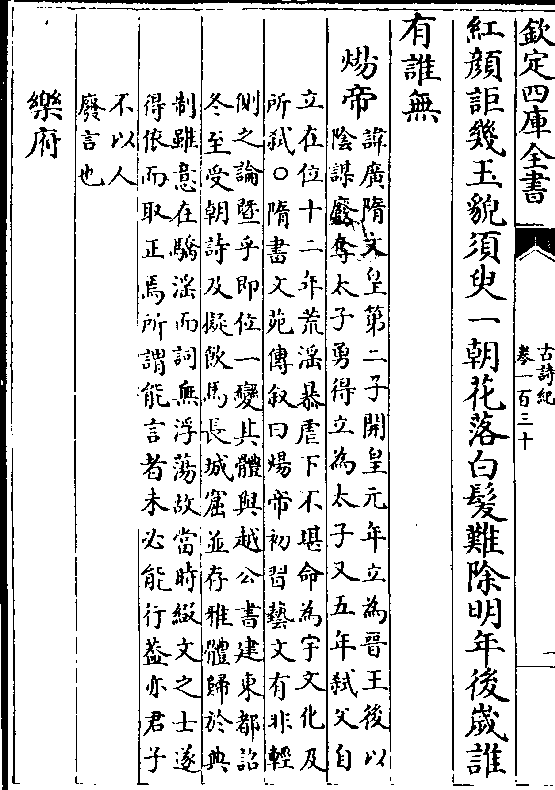 欽定四庫全書
古詩紀
卷一百三十
一
紅顔詎幾玉貌須臾一朝花落白髮難除明年後嵗誰
有誰無
煬帝
諱廣隋文皇第二子開皇元年立為晉王後以
陰謀廢奪太子勇得立為太子又五年弑父自
立在位十二年荒淫暴虐下不堪命為宇文化及
所弑○隋書文苑傳叙曰煬帝初習藝文有非輕
側之論暨乎即位一變其體與越公書建東都詔
冬至受朝詩及擬飲馬長城窟並存雅體歸於典
制雖意在驕淫而詞無浮蕩故當時綴文之士遂
得依而取正焉所謂能言者未必能行葢亦君子
不以人
廢言也
樂府